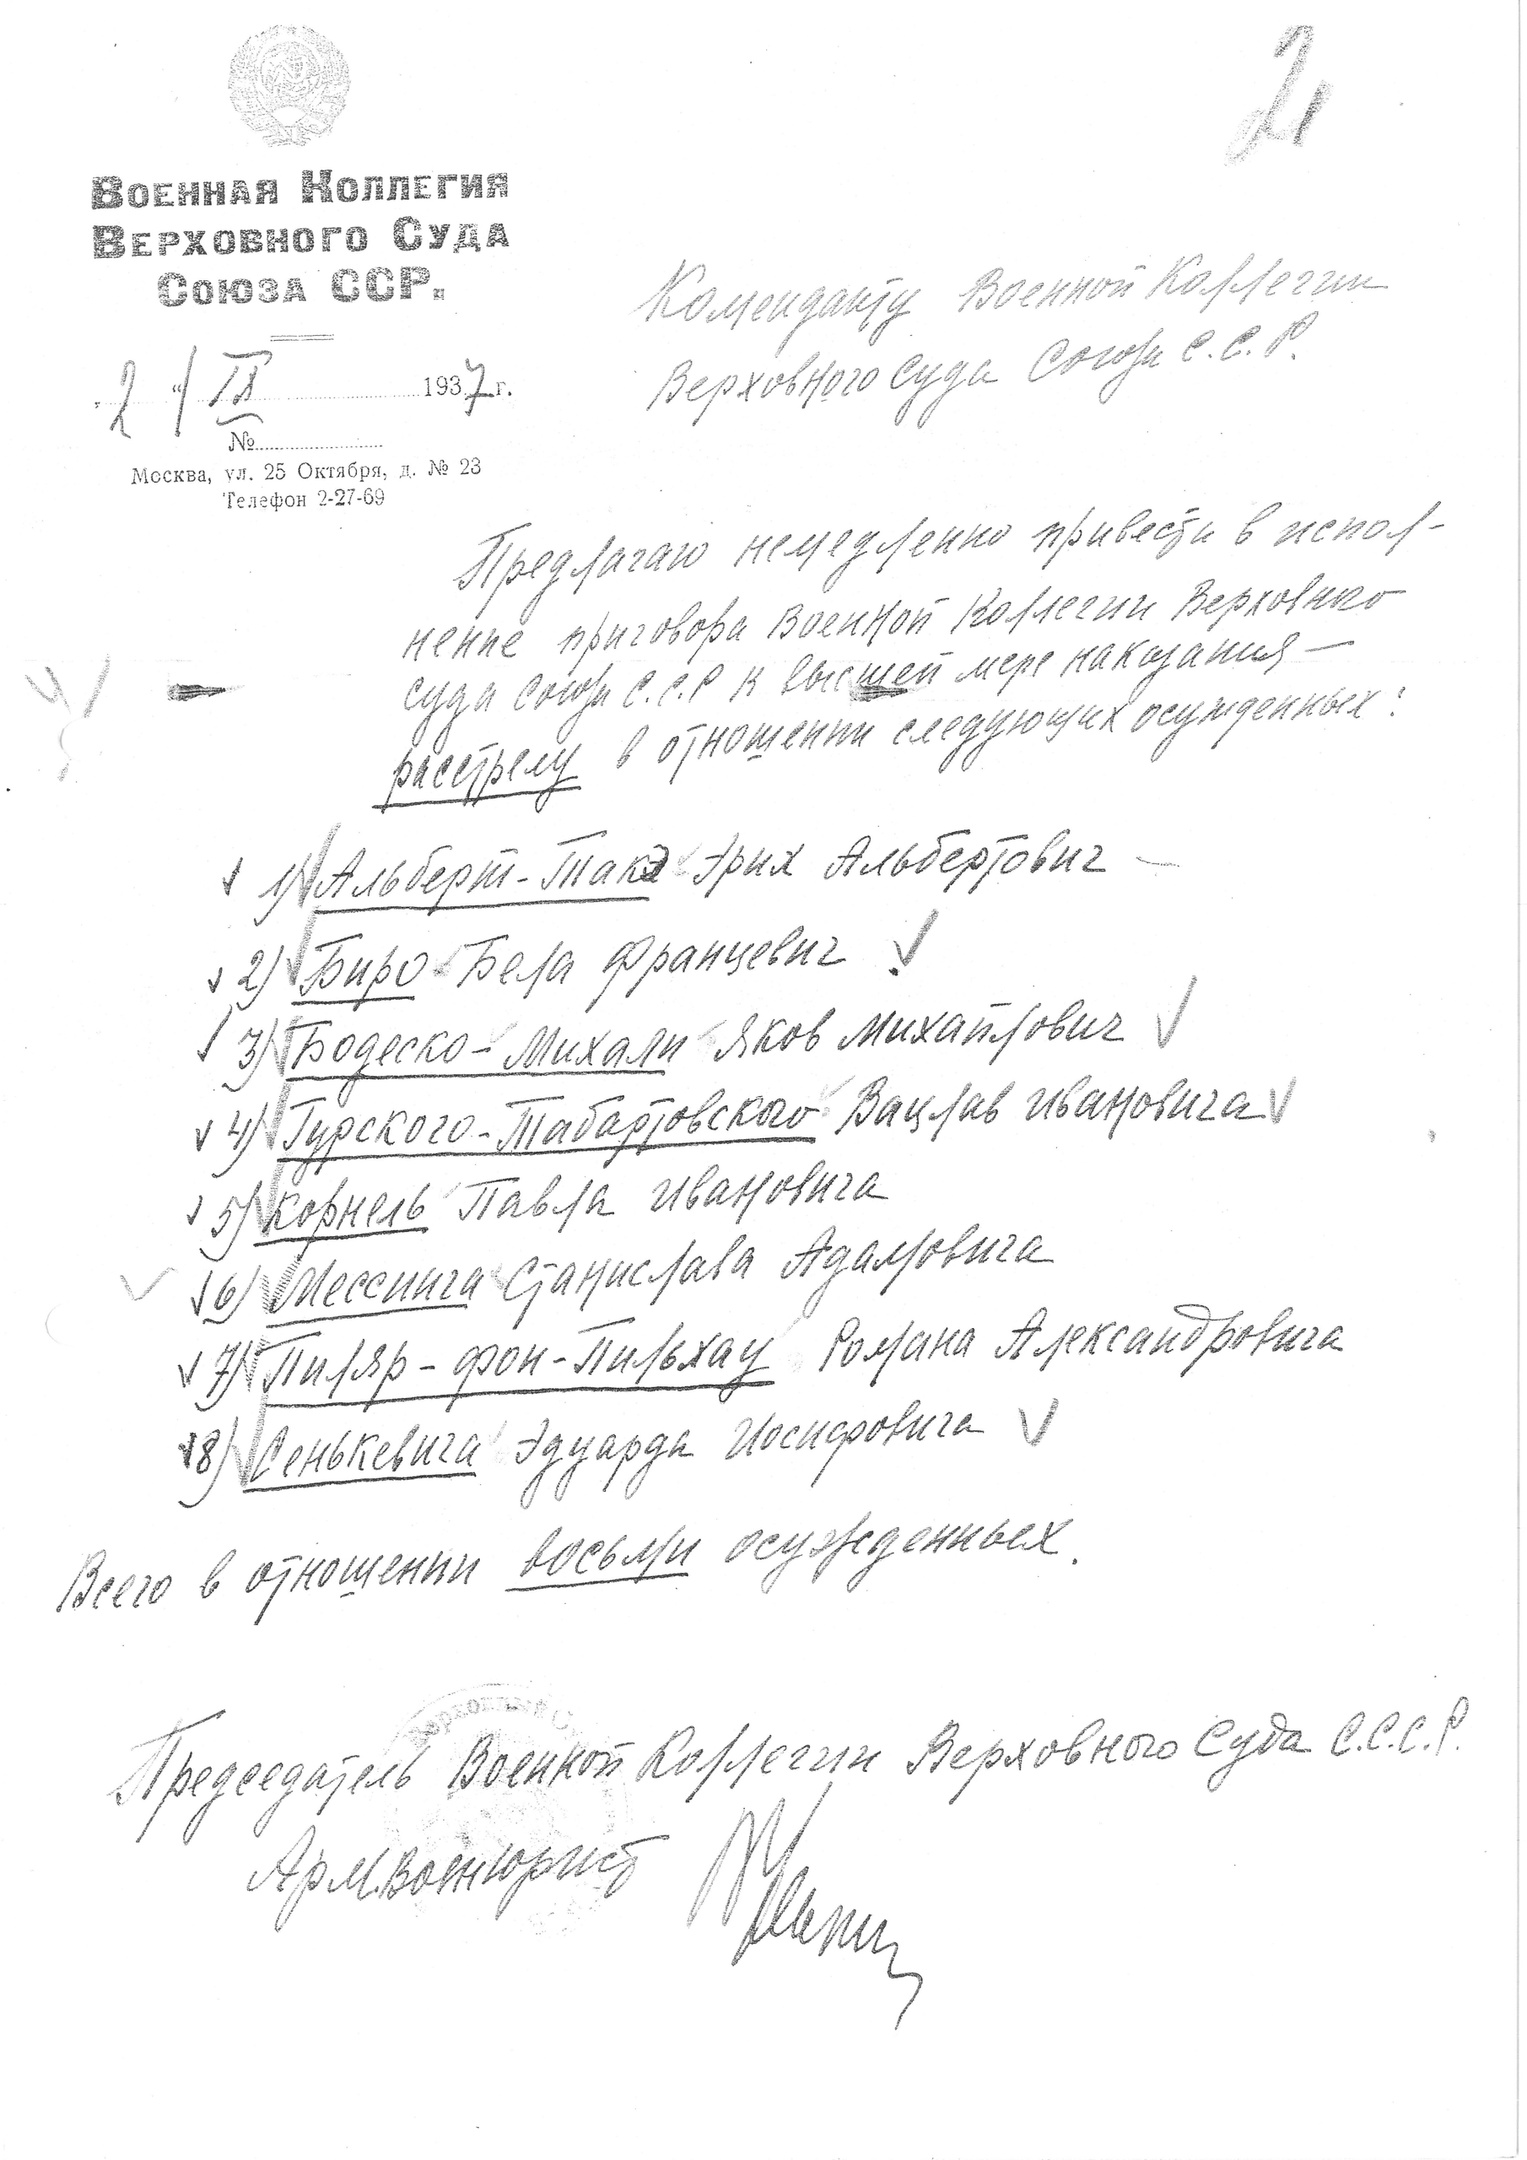 21
ВОЕННАЯ КОЛЛЕГИЯ
ВЕРХОВНОГО СУДА
СОЮЗА ССР.
2 " IX 1937 г.
№
Москва, ул. 25 Октября, д. № 23
Телефон 2-27-69
Коменданту Военной Коллегии
Верховного Суда Союза С.С.Р.
Предлагаю немедленно привести в испол-
нение приговора Военной Коллегии Верховного
Суда Союза С.С.Р к высшей мере наказания –
расстрелу в отношении следующих осужденных:
1) Альберт-Такэ Эрих Альбертович –
2) Биро Бела Францевич
3) Бодеско-Михали Яков Михайлович
4) Гурского-Табартовского Вацлав Ивановича
5) Корнель Павла Ивановича
6) Мессинга Станислава Адамовича
7) Пиляр-фон-Пильхау Романа Александровича
8) Сенькевича Эдуарда Иосифовича
Всего в отношении восьми осужденных.
Председатель Военной Коллегии Верховного Суда С.С.С.Р.
Арм.военюрист